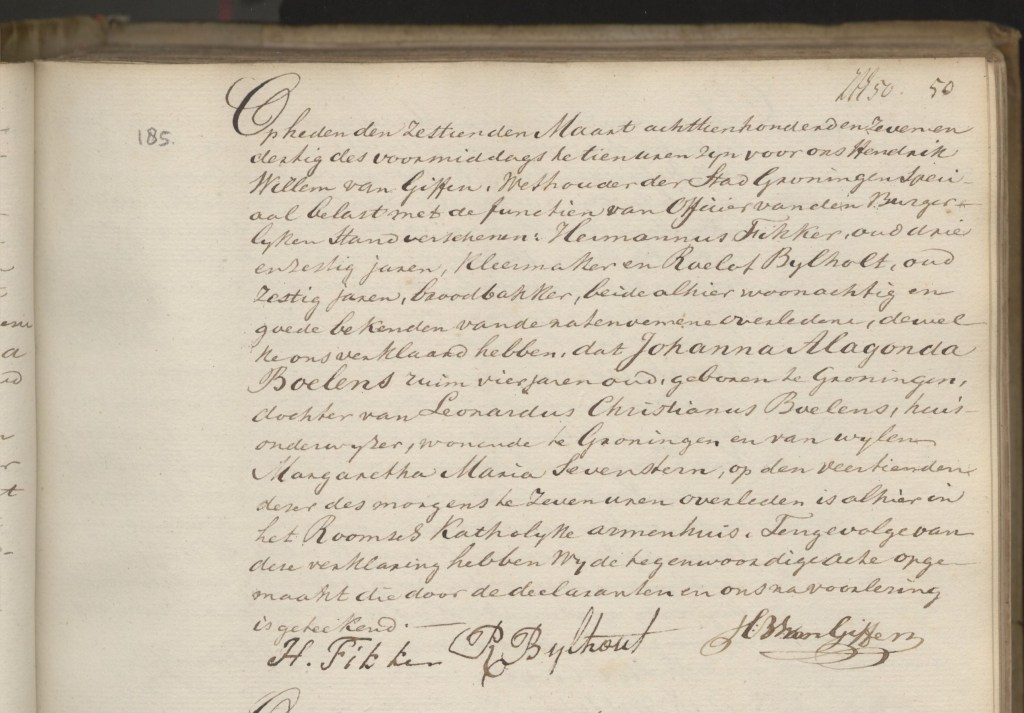 50. 50
185.
Op heden den zestienden Maart achttienhonderd en zeven en
dertig des voormiddags te tien uren zijn voor ons Hendrik
Willem van Giffen, Wethouder der Stad Groningen speci-
aal belast met de functien van Officier van den Burger-
lyken Stand verschenen: Hermannus Fikker, oud drie
en zestig jaren, kleermaker en Roelof Bylholt, oud
zestig jaren, broodbakker, beide alhier woonachtig en
goede bekenden van de natenoemene overledene, dewel-
ke ons verklaard hebben, dat Johanna Alagonda
Boelens ruim vier jaren oud, geboren te Groningen,
dochter van Leonardus Christianus Boelens, huis-
onderwyzer, wonende te Groningen en van wylen
Margaretha Maria Sevenstern, op den veertienden
dezer des morgens te zeven uren overleden is alhier in
het Roomsch Katholyke armenhuis. Tengevolge van
deze verklaring hebben Wy de tegenwoordige acte opge-
maakt die door de declaranten en ons na voorlezing
is geteekend.
H. Fikker R Bylhout HW van Giffen